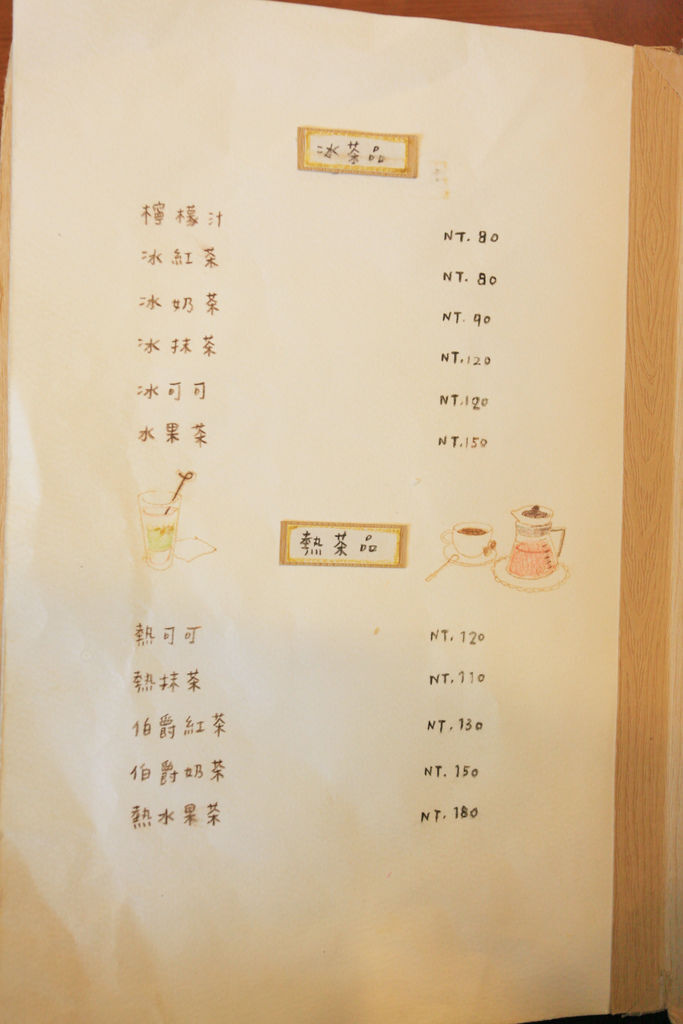 冰茶品
檸檬汁 NT. 80
冰紅茶 NT. 80
冰奶茶 NT. 90
冰抹茶 NT.120
冰可可 NT.120
水果茶 NT.150
熱茶品
熱可可 NT. 120
熱抹茶 NT. 110
伯爵紅茶 NT. 130
伯爵奶茶 NT. 150
熱水果茶 NT. 180